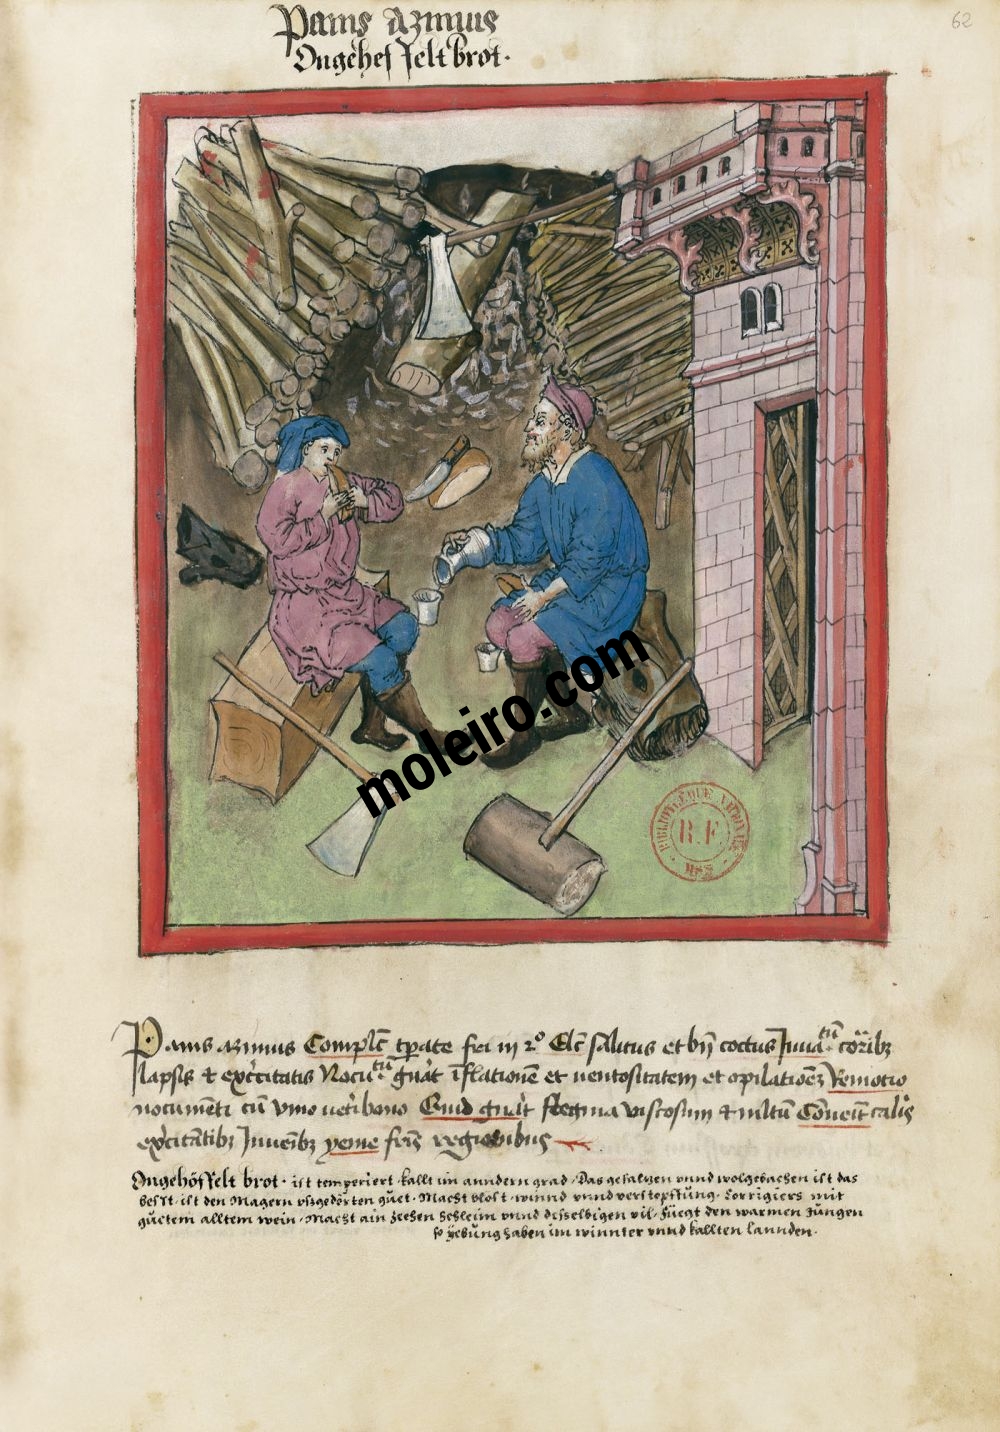 62
Panis Azimus
Ungehesselt brot.
moleiro.com
BIBLIOTHÈQUE
R.F.
Panis azimus Complē tp̄ate fri in 2° Elc̄ salitus et bn̄ coctus Iuua.tū corꝑibꝫ
lapsis et exercitatis Nocu.tū gnāt īflationē et uentositatem et opilationeꝫ Remotio
nocumēti cū vino ueteri bono Quid gnāt flegma viscosum et multū Conueīt calis
exercitātibꝫ Iuuēibꝫ yeme fris regionibus
Ungehöffelt brot. ist temperiert kallt im anndern grad. Das gesalzen vnnd wolgebachen ist das
besst. ist den Magern vsgedörten guet. Macht blost. winnd vnnd verstopffung. Corrigiers mit
guetem alltem wein. Macht ain zechen schleim vnnd desselbigen vil. Füegt den warmen Jungen
so yebung haben im winnter vnnd kallten lannden.